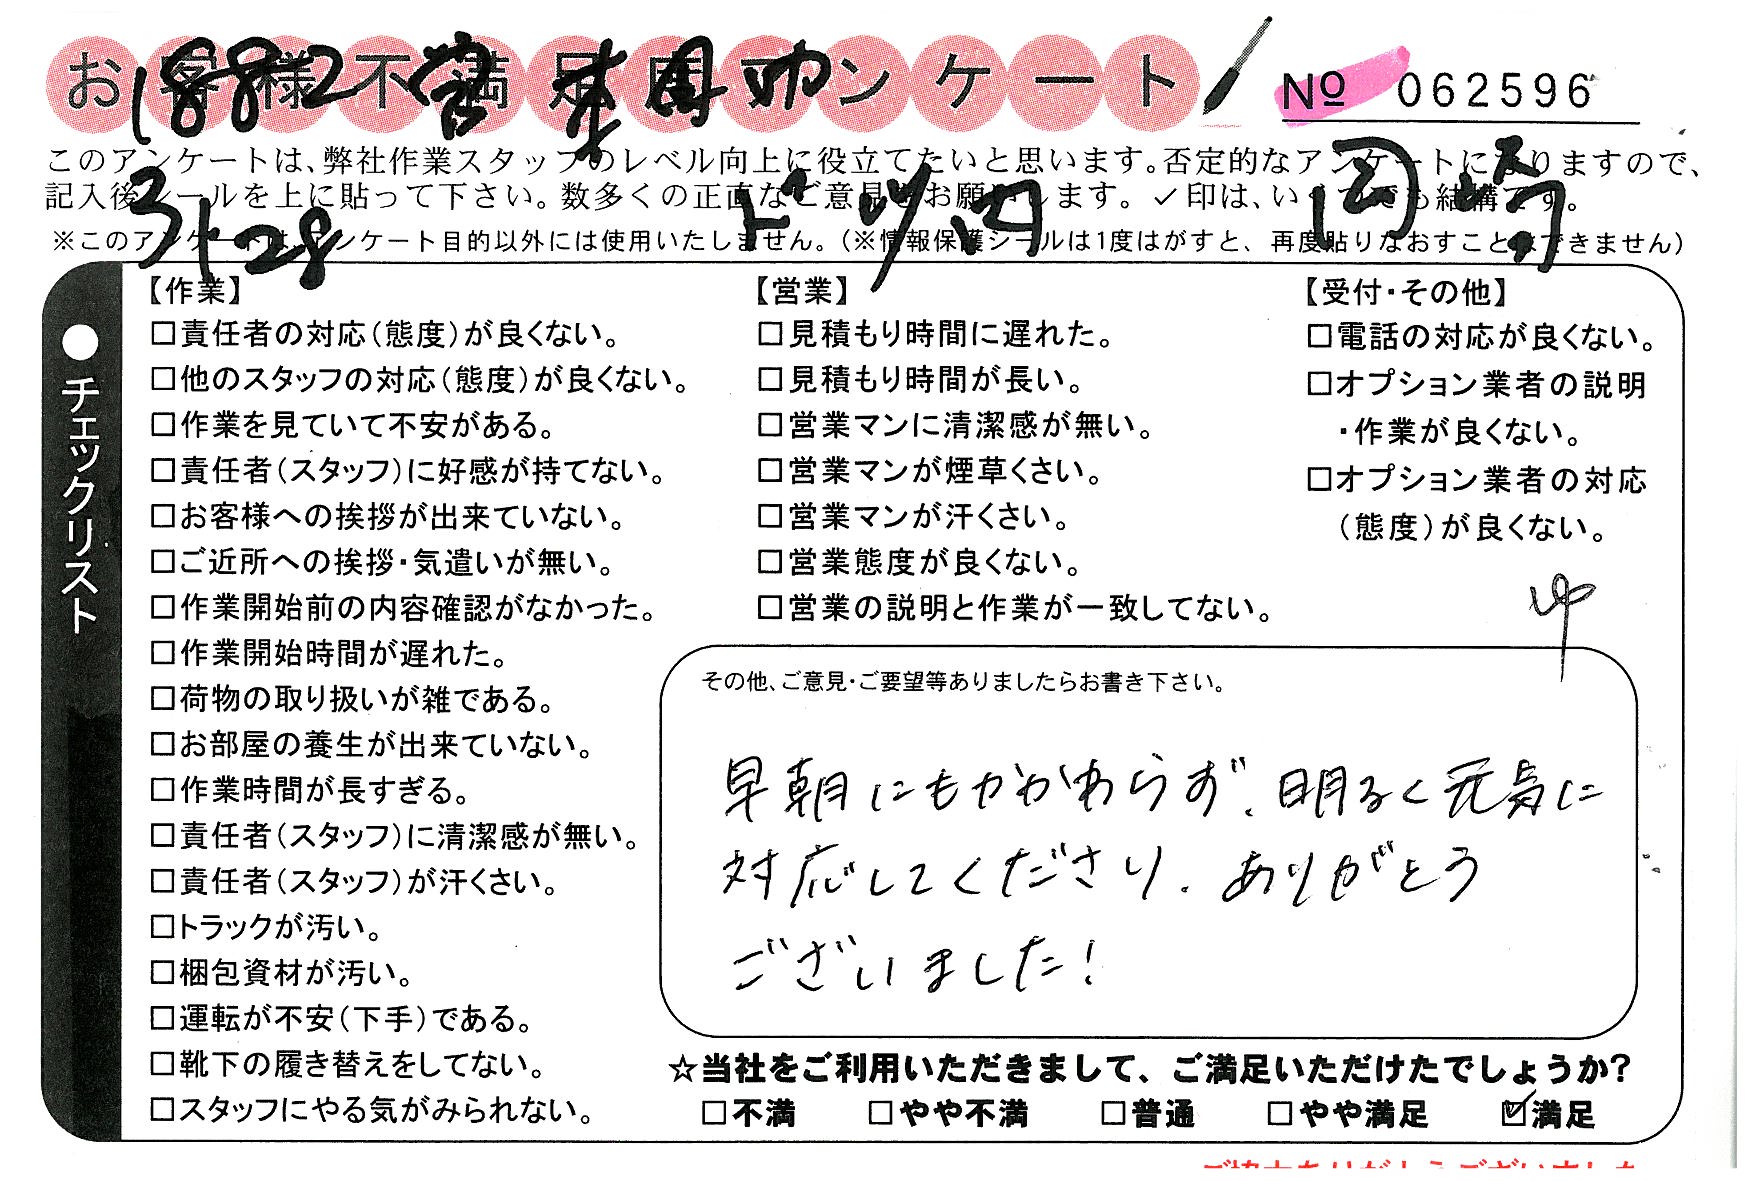 お客様不満足度アンケート
№ 062596
1882
3/28
このアンケートは、弊社作業スタッフのレベル向上に役立てたいと思います。否定的なアンケートになりますので、
記入後シールを上に貼って下さい。数多くの正直なご意見をお願いします。✓印は、いくつでも結構です。
※このアンケートは、アンケート目的以外には使用いたしません。(※情報保護シールは1度はがすと、再度貼りなおすことはできません)
●チェックリスト
【作業】
□責任者の対応(態度)が良くない。
□他のスタッフの対応(態度)が良くない。
□作業を見ていて不安がある。
□責任者(スタッフ)に好感が持てない。
□お客様への挨拶が出来ていない。
□ご近所への挨拶・気遣いが無い。
□作業開始前の内容確認がなかった。
□作業開始時間が遅れた。
□荷物の取り扱いが雑である。
□お部屋の養生が出来ていない。
□作業時間が長すぎる。
□責任者(スタッフ)に清潔感が無い。
□責任者(スタッフ)が汗くさい。
□トラックが汚い。
□梱包資材が汚い。
□運転が不安(下手)である。
□靴下の履き替えをしてない。
□スタッフにやる気がみられない。
【営業】
□見積もり時間に遅れた。
□見積もり時間が長い。
□営業マンに清潔感が無い。
□営業マンが煙草くさい。
□営業マンが汗くさい。
□営業態度が良くない。
□営業の説明と作業が一致してない。
【受付・その他】
□電話の対応が良くない。
□オプション業者の説明
・作業が良くない。
□オプション業者の対応
(態度)が良くない。
その他、ご意見・ご要望等ありましたらお書き下さい。
早朝にもかかわらず、明るく元気に
対応してくださり、ありがとう
ございました!
☆当社をご利用いただきまして、ご満足いただけたでしょうか?
□不満 □やや不満 □普通 □やや満足 ☑満足
ご協力ありがとうございました